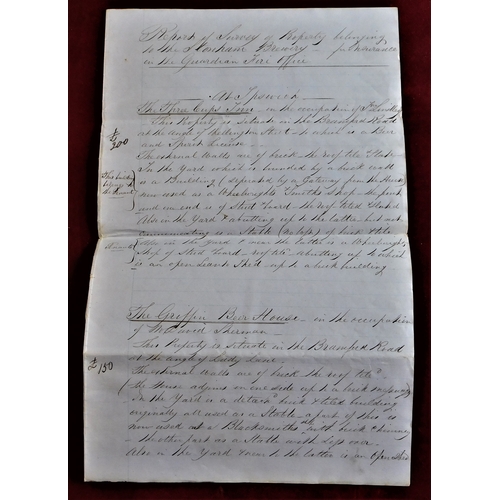 Report of Survey of Property belonging
to the Stonham Brewery - for Insurance
in the Guardian Fire Office
At Ipswich
The Three Cups Inn - in the occupation of
This Property is situate in the Bramford Road
at the angle of Wellington Street - to which is a Beer
and Spirit License -
£200
The external Walls are of brick - the roof tiled
In the Yard which is bounded by a brick wall
is a Building (separated by a from the House)
This building
belongs to
the
now used as a Wheelwrights & Smiths Shop - the front
and one end is of Stud & board - the roof tiled
Also in the Yard & abutting up to the latter but not
communicating is a Stable of brick & tile
Also in the yard & near the latter is a Wheelwrights
Shop of Stud & board - roof tile - abutting up to which
is an open leant Shed - up to a brick building
The Griffin Beer House - in the occupation
of David Sherman
This Property is situate in the Bramford Road
at the angle of Lady Lane -
£150
The external Walls are of brick the roof tile
the House adjoins on one side up to a brick
In the Yard is a detachd brick & tiled building
originally all used as a Stable - a part of this is
now used as a Blacksmiths with brick chimney
- the other part as a Stable with loft over
Also in the Yard & near to the latter is an Open Shed